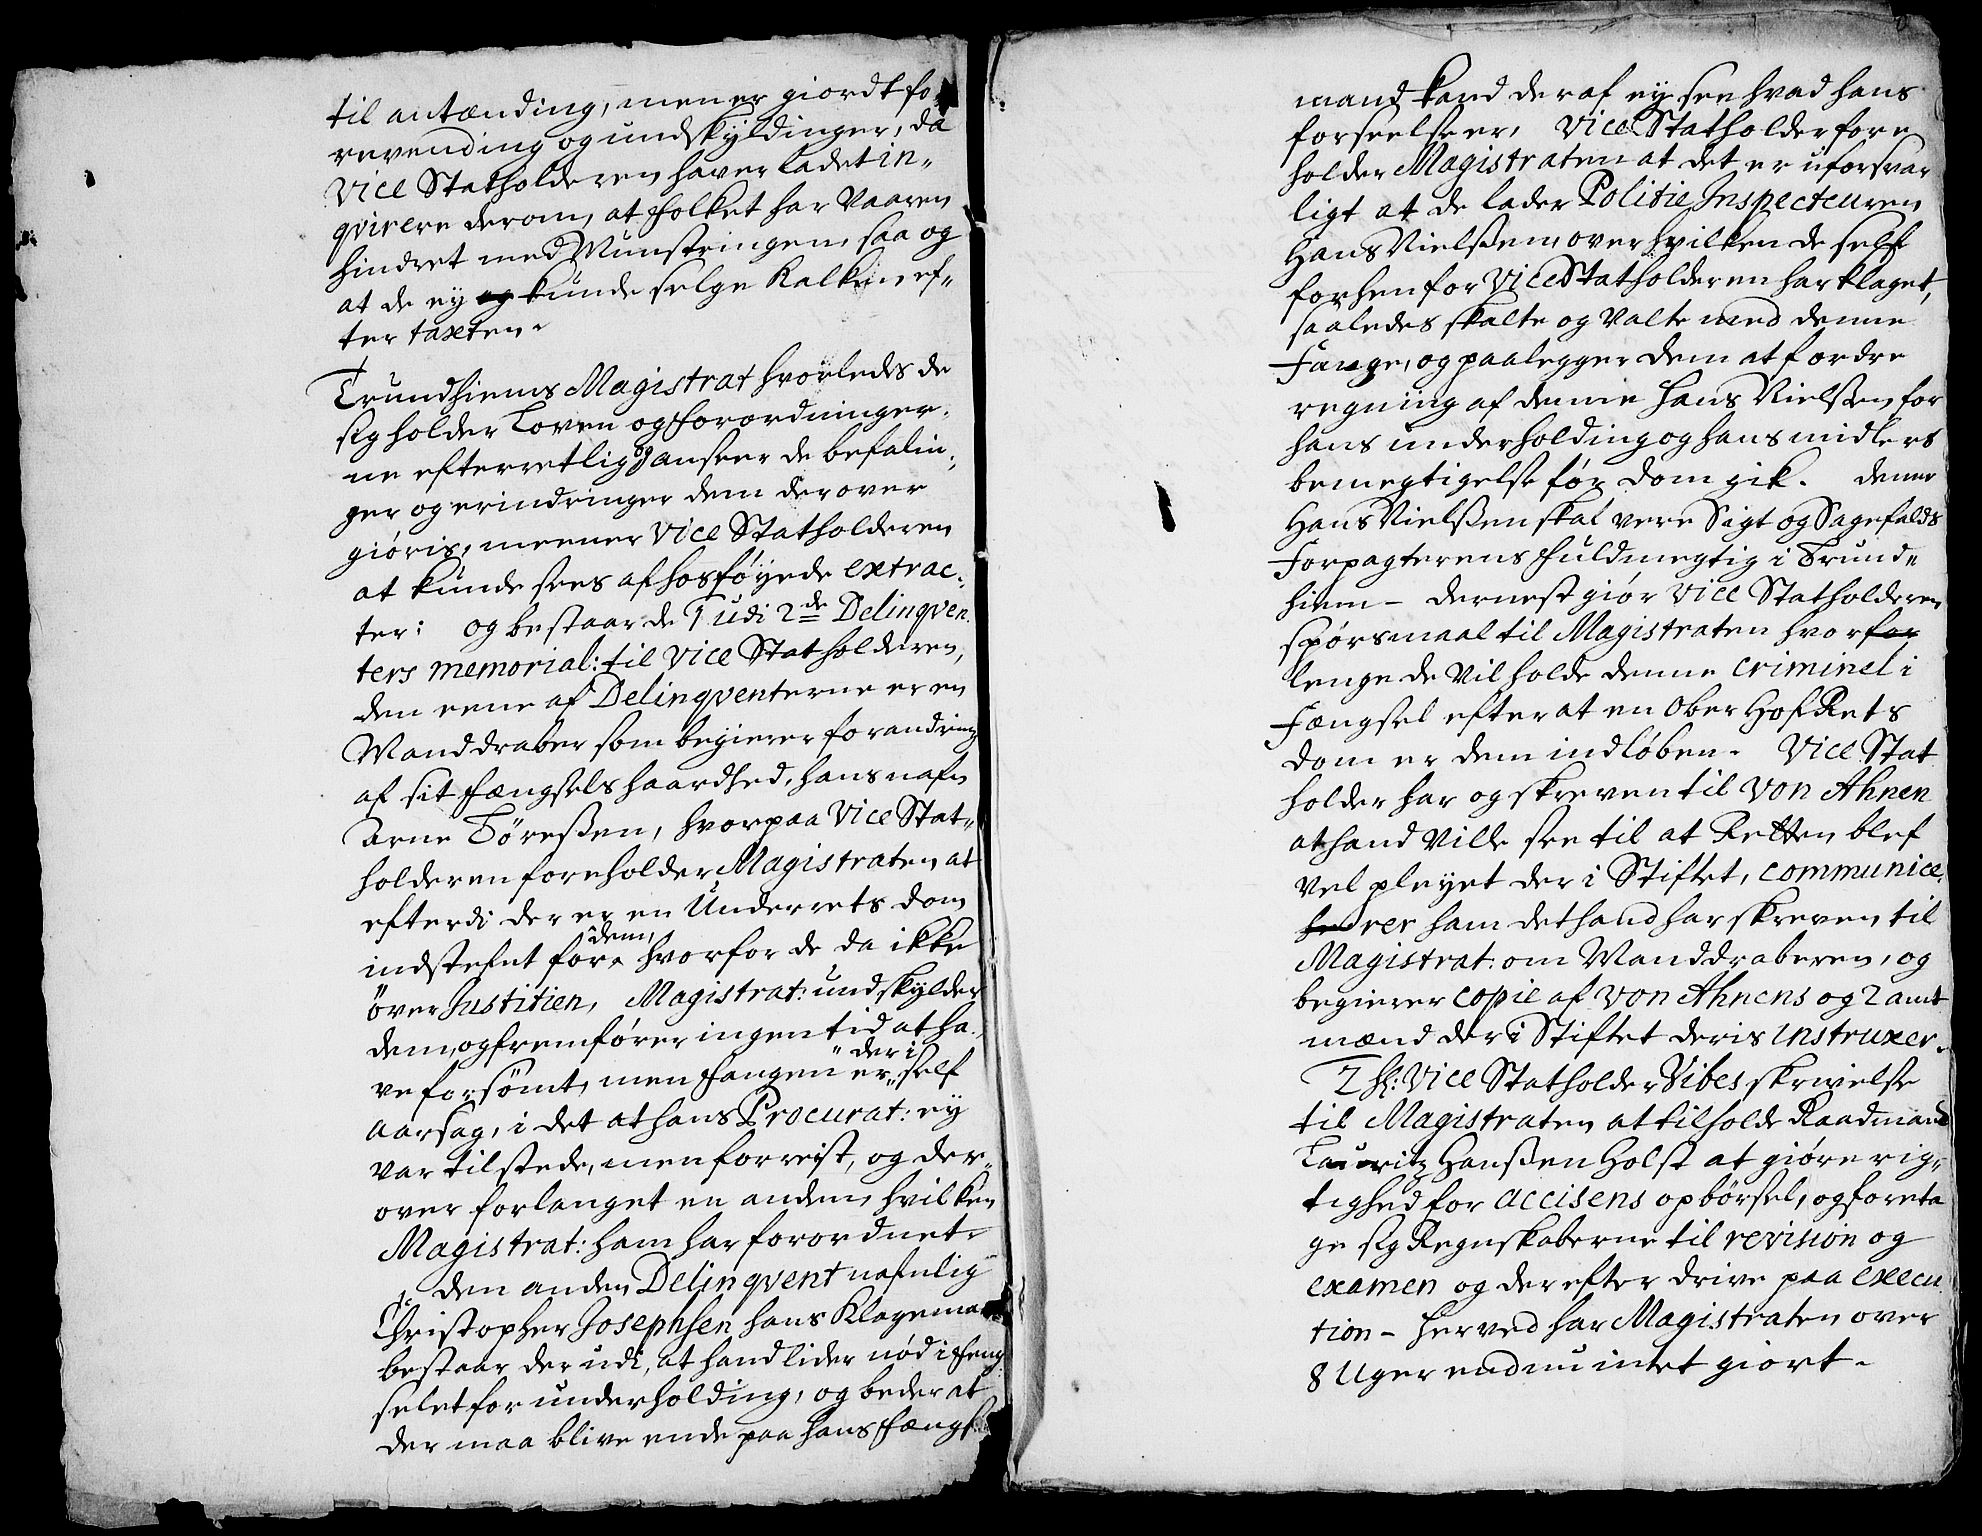 til antænding, men er giordt fo
revending og undskyldinger, da
Vice Statholderen haver ladet in-
qvirere derom, at folket har Vaaren
hindret med Munstringen, saa og
at de ey og kunde selge Kalken ef-
ter taxten.
Trundhiems Magistrat hvorledes de
sig holder Loven og forordninger-
ne efterretlig og anseer de befalin-
ger og erindringer dem derover
giøris, meener Vice Statholderen
at kunde sees af hosføyede extrac-
ter: og bestaar de 1 udi 2de Delinqven-
ters memorial: til Vice Statholderen,
den eene af Delinqventerne er en
Manddraber som begierer forandring
af sit fængsels haardhed, hans nafn
Arne Töreßen, hvorpaa Vice Stat-
holderen foreholder Magistraten, at
efterdi der er en Underrets dom
indstefnt for dem, hvorfor de da ikke
över Justitien, Magistrat: undskylder
dem, og fremfører ingen tid at ha-
ve forsømt, men fangen er der i self
aarsag, i det at hans Procurat: ey
var tilstede, men forreist, og der-
over forlanget en anden, hvilken
Magistrat: ham har forordnet.
den anden Delinqvent nafnlig
Christopher Josephsen hans Klagemaa
bestaar der udi, at hand lider nød i feng-
selet for underholding, og beder at
der maa blive ende paa hans fængs
mand kand deraf ey see hvad hans
forseelse er, Vice Statholder fore
holder Magistraten at det er uforsvar
ligt at de lader Politie Inspecteuren
Hans Nielßen, over hvilken de self
forhen for Vice Statholderen har klaget,
saaledes skalte og Valte med denne
Fange, og paalegger dem at fordre
regning af denne Hans Nielßen for
hans underholding og hans midlers
bemegtigelse før dom gik. denne
Hans Nielßen skal vere Sigt og Sagefalds
Forpagterens fuldmegtig i Trund-
hiem - dernest giør Vice Statholderen
spørsmaal til Magistraten hvor for
lenge de vil holde denne criminel i
Fængsel efter at en Ober Hof Rets
dom er dem indløben. Vice Stat
holder har og skreven til Von Ahnen
at hand Ville see til at Retten blef
vel pleyet der i Stiftet, communice-
rer ham det hand har skreven til
Magistrat: om Manddraberen, og
begierer copie af von Ahnens og 2 amt
mænd der i Stiftet deris instruxer.
2 hl: Vice Statholder Vibes skrivelse
til Magistraten at tilholde Raadmand
Lauritz Hanßen Holst at giøre rig-
tighed for accisens opbørsel, og foreta
ge sig Regnskaberne til revision og
examen og derefter drive paa execu
tion - Herved har Magistraten over
8 Uger endnu intet giort.